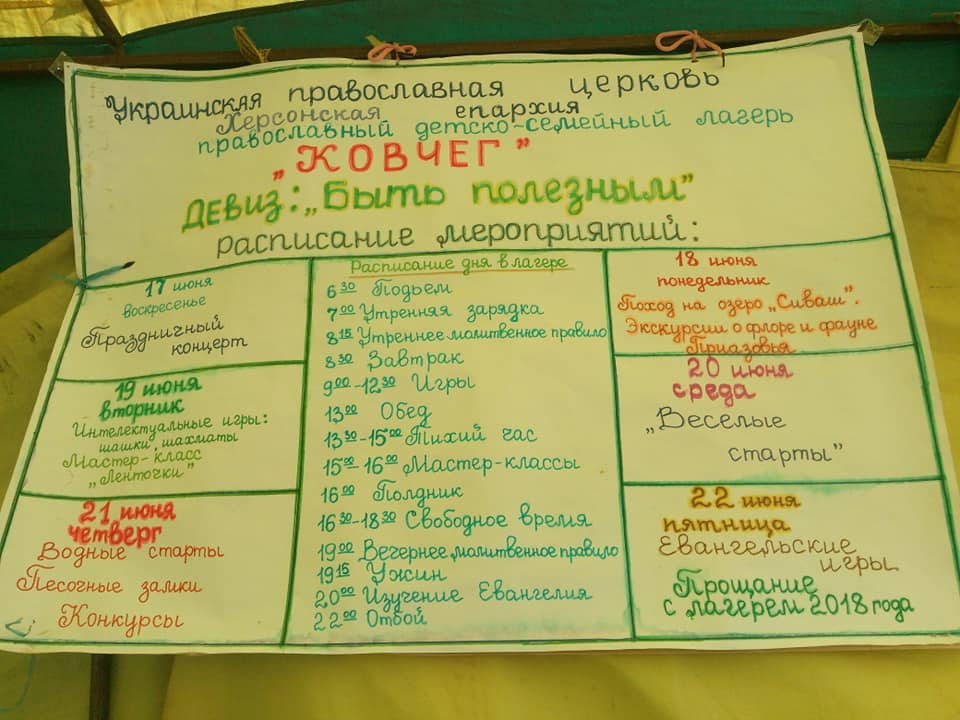 Украинская православная церковь
Херсонская епархия
православный детско-семейный лагерь
„КОВЧЕГ”
ДЕВИЗ: „Быть полезным”
расписание мероприятий:
17 июня
воскресенье
Праздничный
концерт
19 июня
вторник
Интелектуальные игры:
шашки, шахматы
Мастер-класс
„Ленточки”
21 июня
четверг
Водные старты
Песочные замки
Конкурсы
Расписание дня в лагере
6 30 Подьем
7 00 Утренняя зарядка
8 15 Утреннее молитвенное правило
8 30 Завтрак
9 00 - 12 30 Игры
13 00 Обед
13 30 - 15 00 Тихий час
15 00 - 16 00 Мастер-классы
16 00 Полдник
16 30 - 18 30 Свободное время
19 00 Вечернее молитвенное правило
19 15 Ужин
20 00 Изучение Евангелия
22 00 Отбой
18 июня
понедельник
Поход на озеро „Сиваш”.
Экскурсии о флоре и фауне
Приазовья
20 июня
среда
„Веселые
старты”
22 июня
пятница
Евангельские
игры
Прощание
с лагерем 2018 года